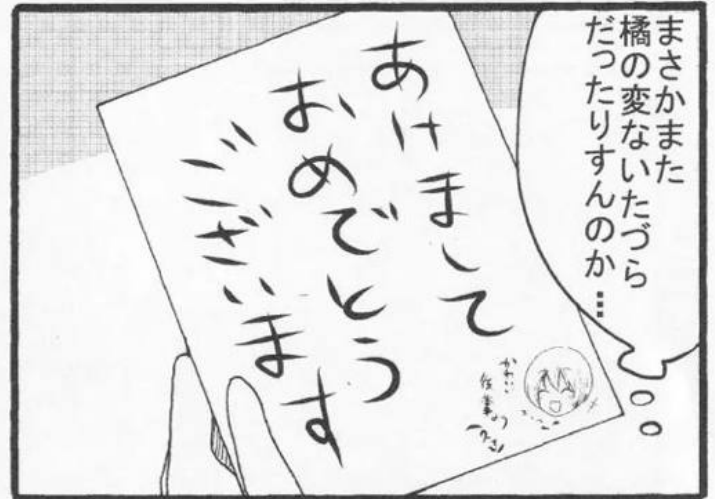 まさかまた
橘の変ないたづら
だったりすんのか…
あけまして
おめでとう
ございます
かわいい